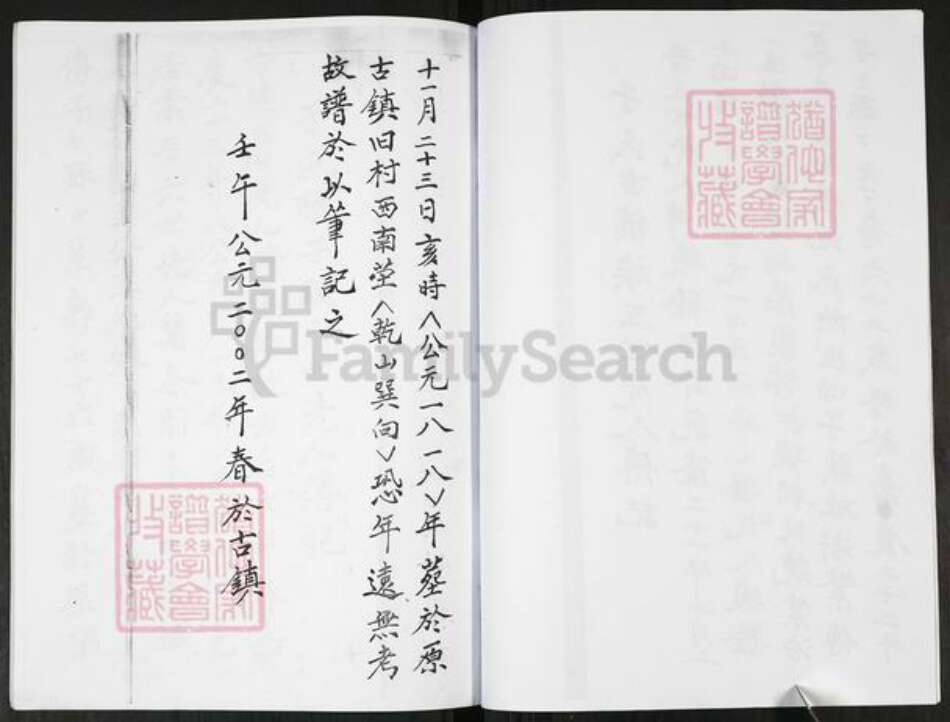 十一月二十三日亥時＜公元一八一八＞年葬於原
古鎮旧村西南塋＜乾山巽向＞恐年遠無考
故譜於以筆記之
壬午公元二〇〇二年春於古鎮
譜學會
收藏
FamilySearch
譜學會
收藏